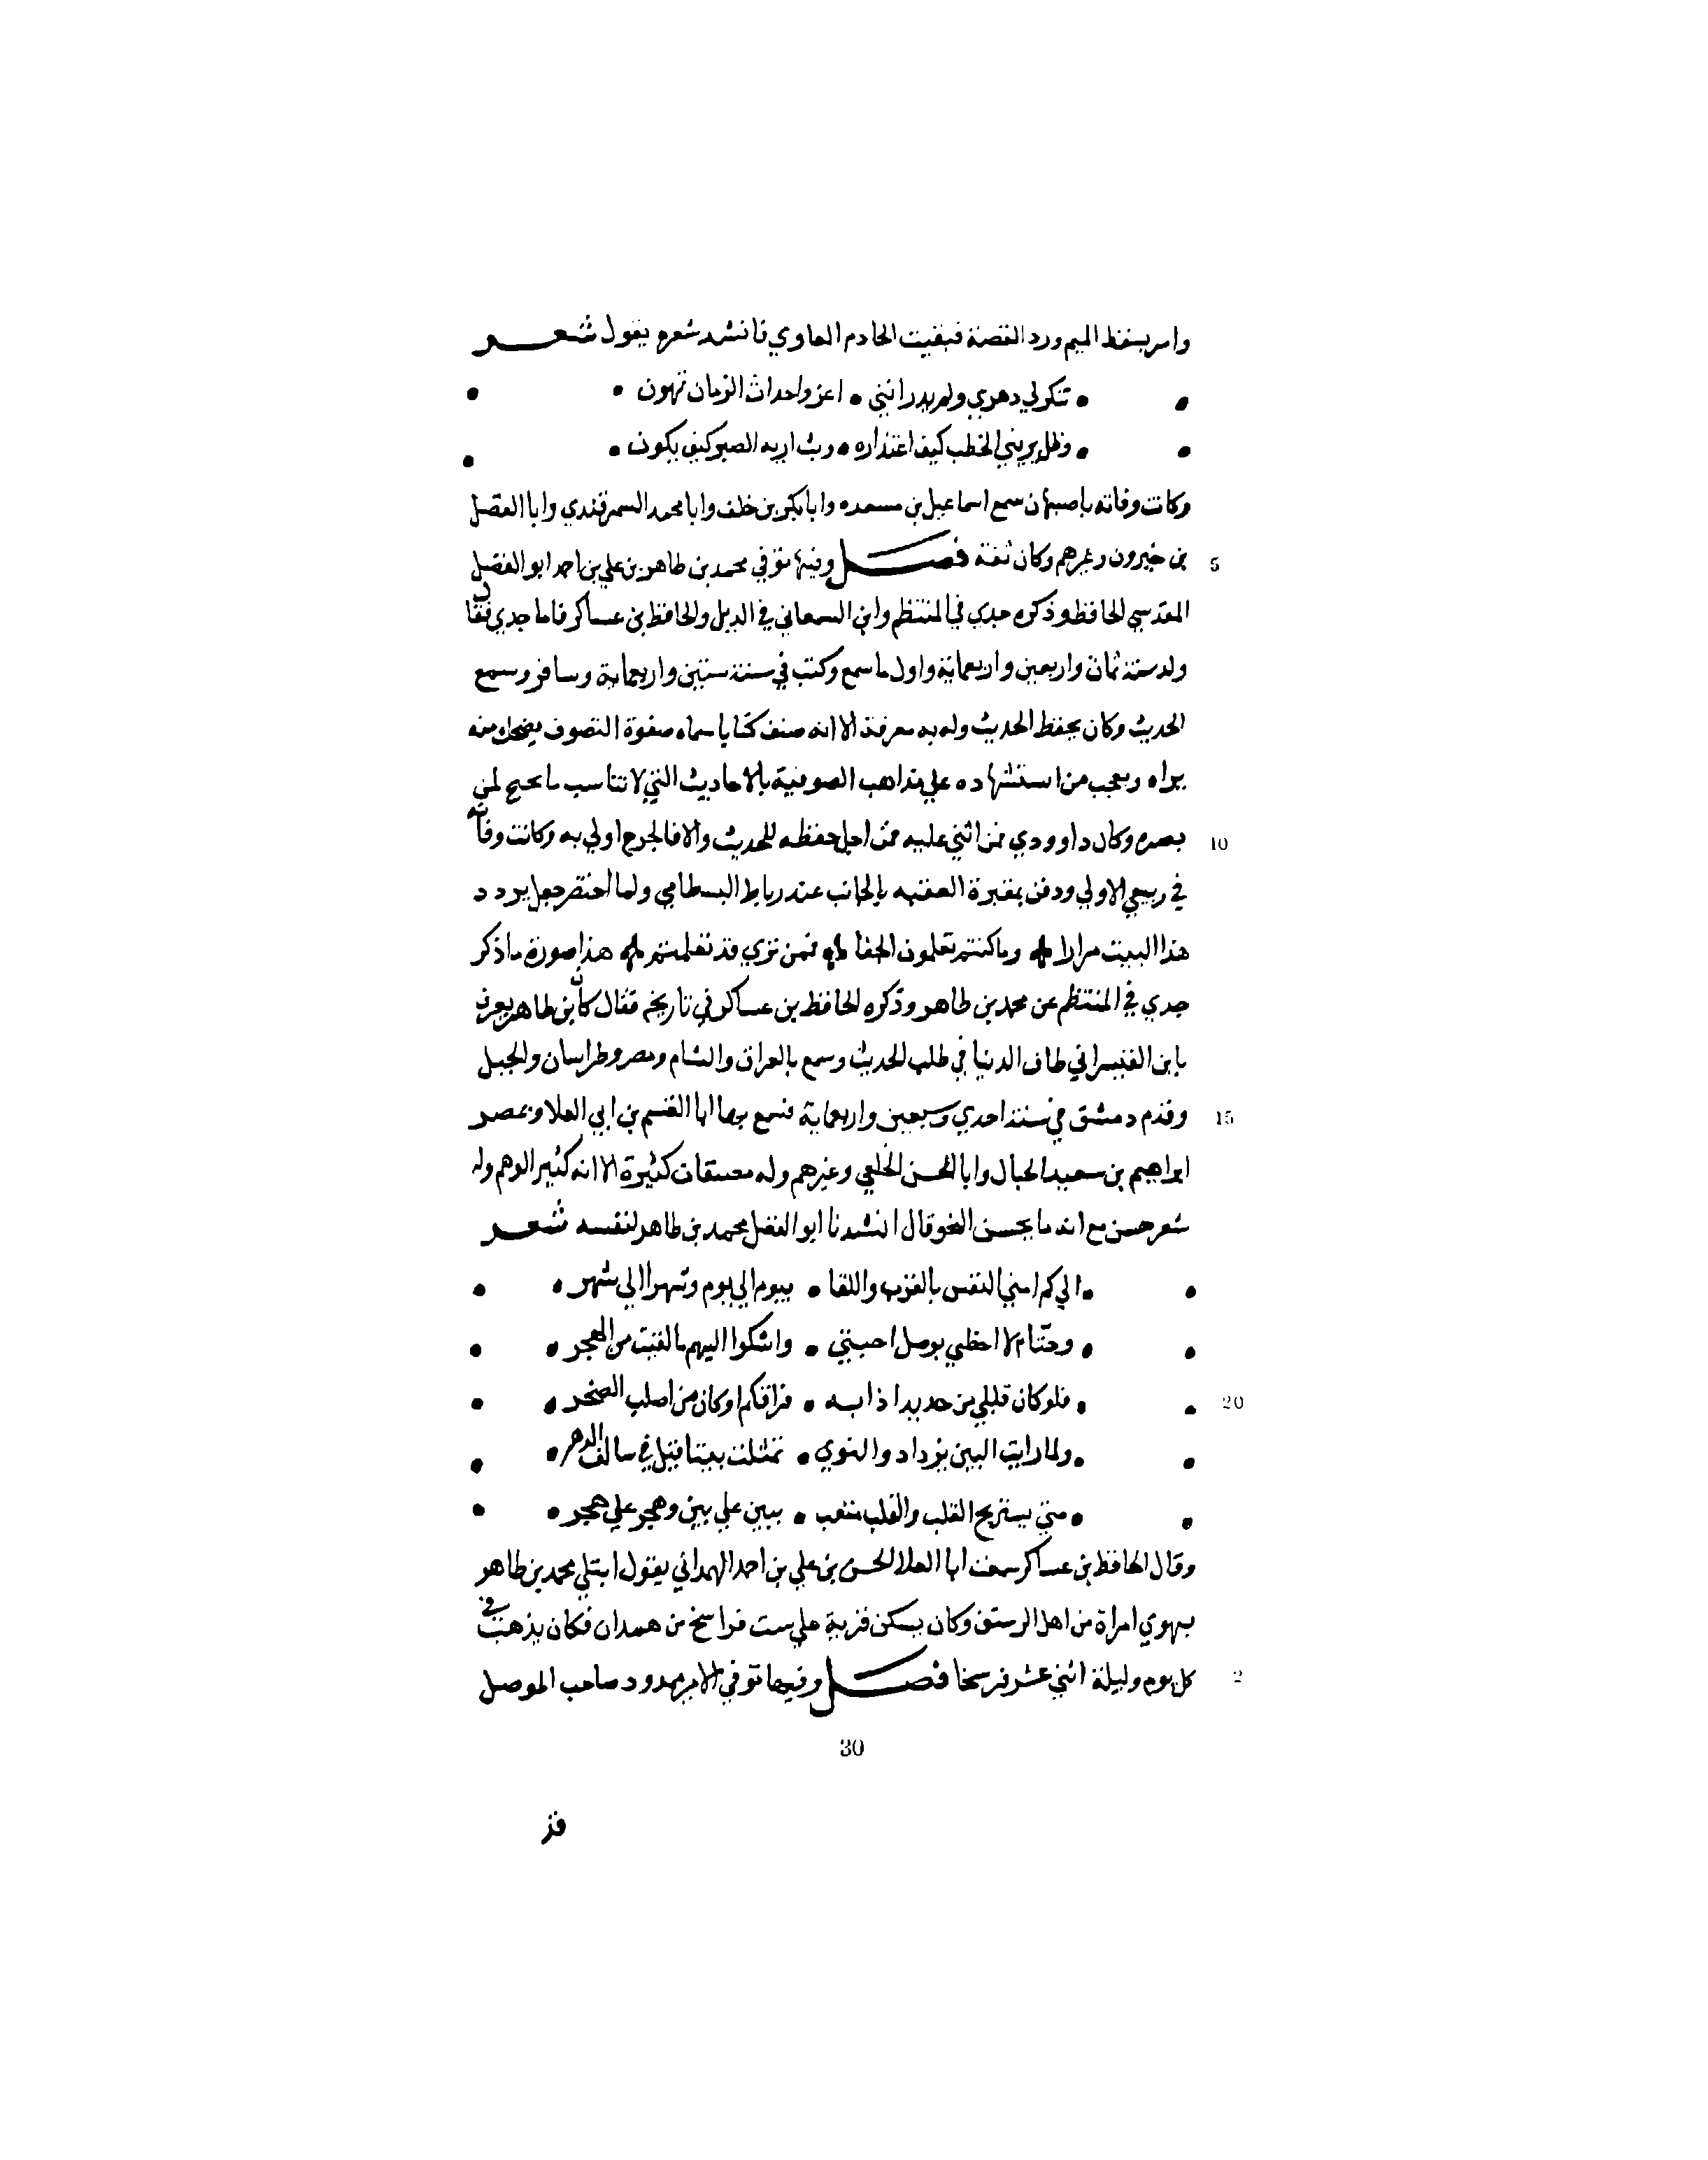 وامر بسقط الميم ورد القصة فبقيت الخادم العاوي فانشد شعره يقول شعر
• • تنكر لي دهري ولم يدر انني • اعز واحداث الزمان تهون • •
• • وظل يريني الخطب كيف اعتذاره • وبت اريه الصبر كيف يكون • •
وكانت وفاته باصبهان سمع اسماعيل بن مسعده وابا بكر بن خلف وابا محمد السمرقندي وابا الفضل
5 بن خيرون وغيرهم وكان ثقة فصل وفيها توفي محمد بن طاهر بن علي بن احمد ابو الفضل
المقدسي الحافظ وذكره جدي في المنتظم وابن السمعاني في الديل والحافظ بن عساكر فاما جدي فقال
ولد سنة ثمان واربعين واربعماية واول ما سمع وكتب في سنة ستين واربعماية وسافر وسمع
الحديث وكان يحفظ الحديث وله به معرفة الا انه صنف كتابا سماه صفوة التصوف يضحك منه
يراه ويعجب من استشهاده علي مذاهب الصوفية بالاحاديث التي لا تناسب ما يحتج لمن
10 بصره وكان داوودي فمن اثني عليه فمن اجل حفظه للحديث والا فالجرح اولي به وكانت وفاته
في ربيع الاولي ودفن بمقبرة العقبه بالجانب عند رباط البسطامي ولما احتضر جعل يردد
هذا البيت مرارا وما كنتم تعلمون الجفا فمن تري قد تعلمتم هذا صورة ما ذكر
جدي في المنتظم عن محمد بن طاهر وذكره الحافظ بن عساكر في تاريخه فقال كان بن طاهر يعرف
بابن القيسراني طاف الدنيا في طلب الحديث وسمع بالعراق والشام ومصر وخراسان والجبل
15 وقدم دمشق في سنة احدي وسبعين واربعماية فسمع بها ابا القسم بن ابي العلا وبمصر
ابراهيم بن سعيد الحبال وابا الحسن الخلعي وغيرهم وله مصنفات كثيرة الا انه كثير الوهم وله
شعر حسن مع انه ما يحسن النحو قال انشدنا ابو الفضل محمد بن طاهر لنفسه شعر
• • الي كم امني النفس بالقرب واللقا • بيوم الي يوم وشهرا الي شهر • •
• • وحتام لا احظي بوصل احبتي • واشكوا اليهم ما لقيت من الهجر • •
20 • • فلو كان قلبي من حديد اذابه • فراقكم او كان من اصلب الصخر • •
• • ولما رايت البين يزداد والنوي • تمثلت بيتا قيل في سالف الدهر • •
• • متي يستريح القلب والقلب متعب • ببين علي بين وهجر علي هجر • •
وقال الحافظ بن عساكر سمعت ابا العلا الحسن بن علي بن احمد الهمداني يقول ابتلي محمد بن طاهر
بهوي امراة من اهل الرستق وكان يسكن قرية علي ست فراسخ من همدان فكان يذهب في
2 كل يوم وليلة اثني عشر فرسخا فصل وفيها توفي الامير مودود صاحب الموصل
30
قز